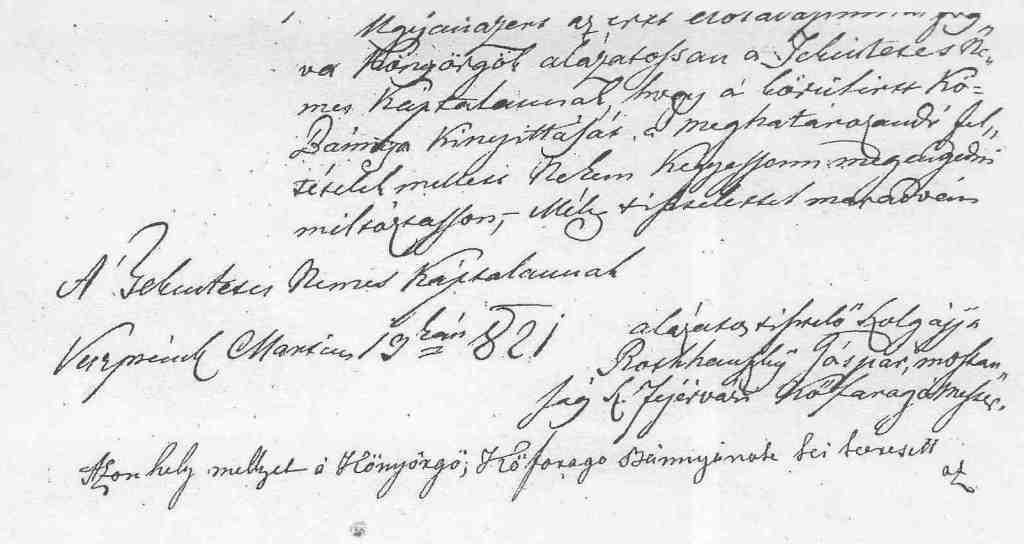 Ugyanazért az
va Könyörgök alázatossan a Tekintetes Ne„
mes Káptalannak, hogy á körülirtt Kö=
Bánnya Kinyittását, a meghatározandó fel„
tételek mellett Nekem Kegyessenn megengedni
méltóztasson, – Mély tisztelettel maradván
A Tekintetes Nemes Káptalannak
Veszprémb Martius 13kán 821
alázatos tisztelő Szolgájja
Gáspár, mostan„
ság Sz. Fejérvári Kőfaragó Mester.
Azon hely mellyet á Könyörgő, Kőfarago Bánnyának ki keresett
az